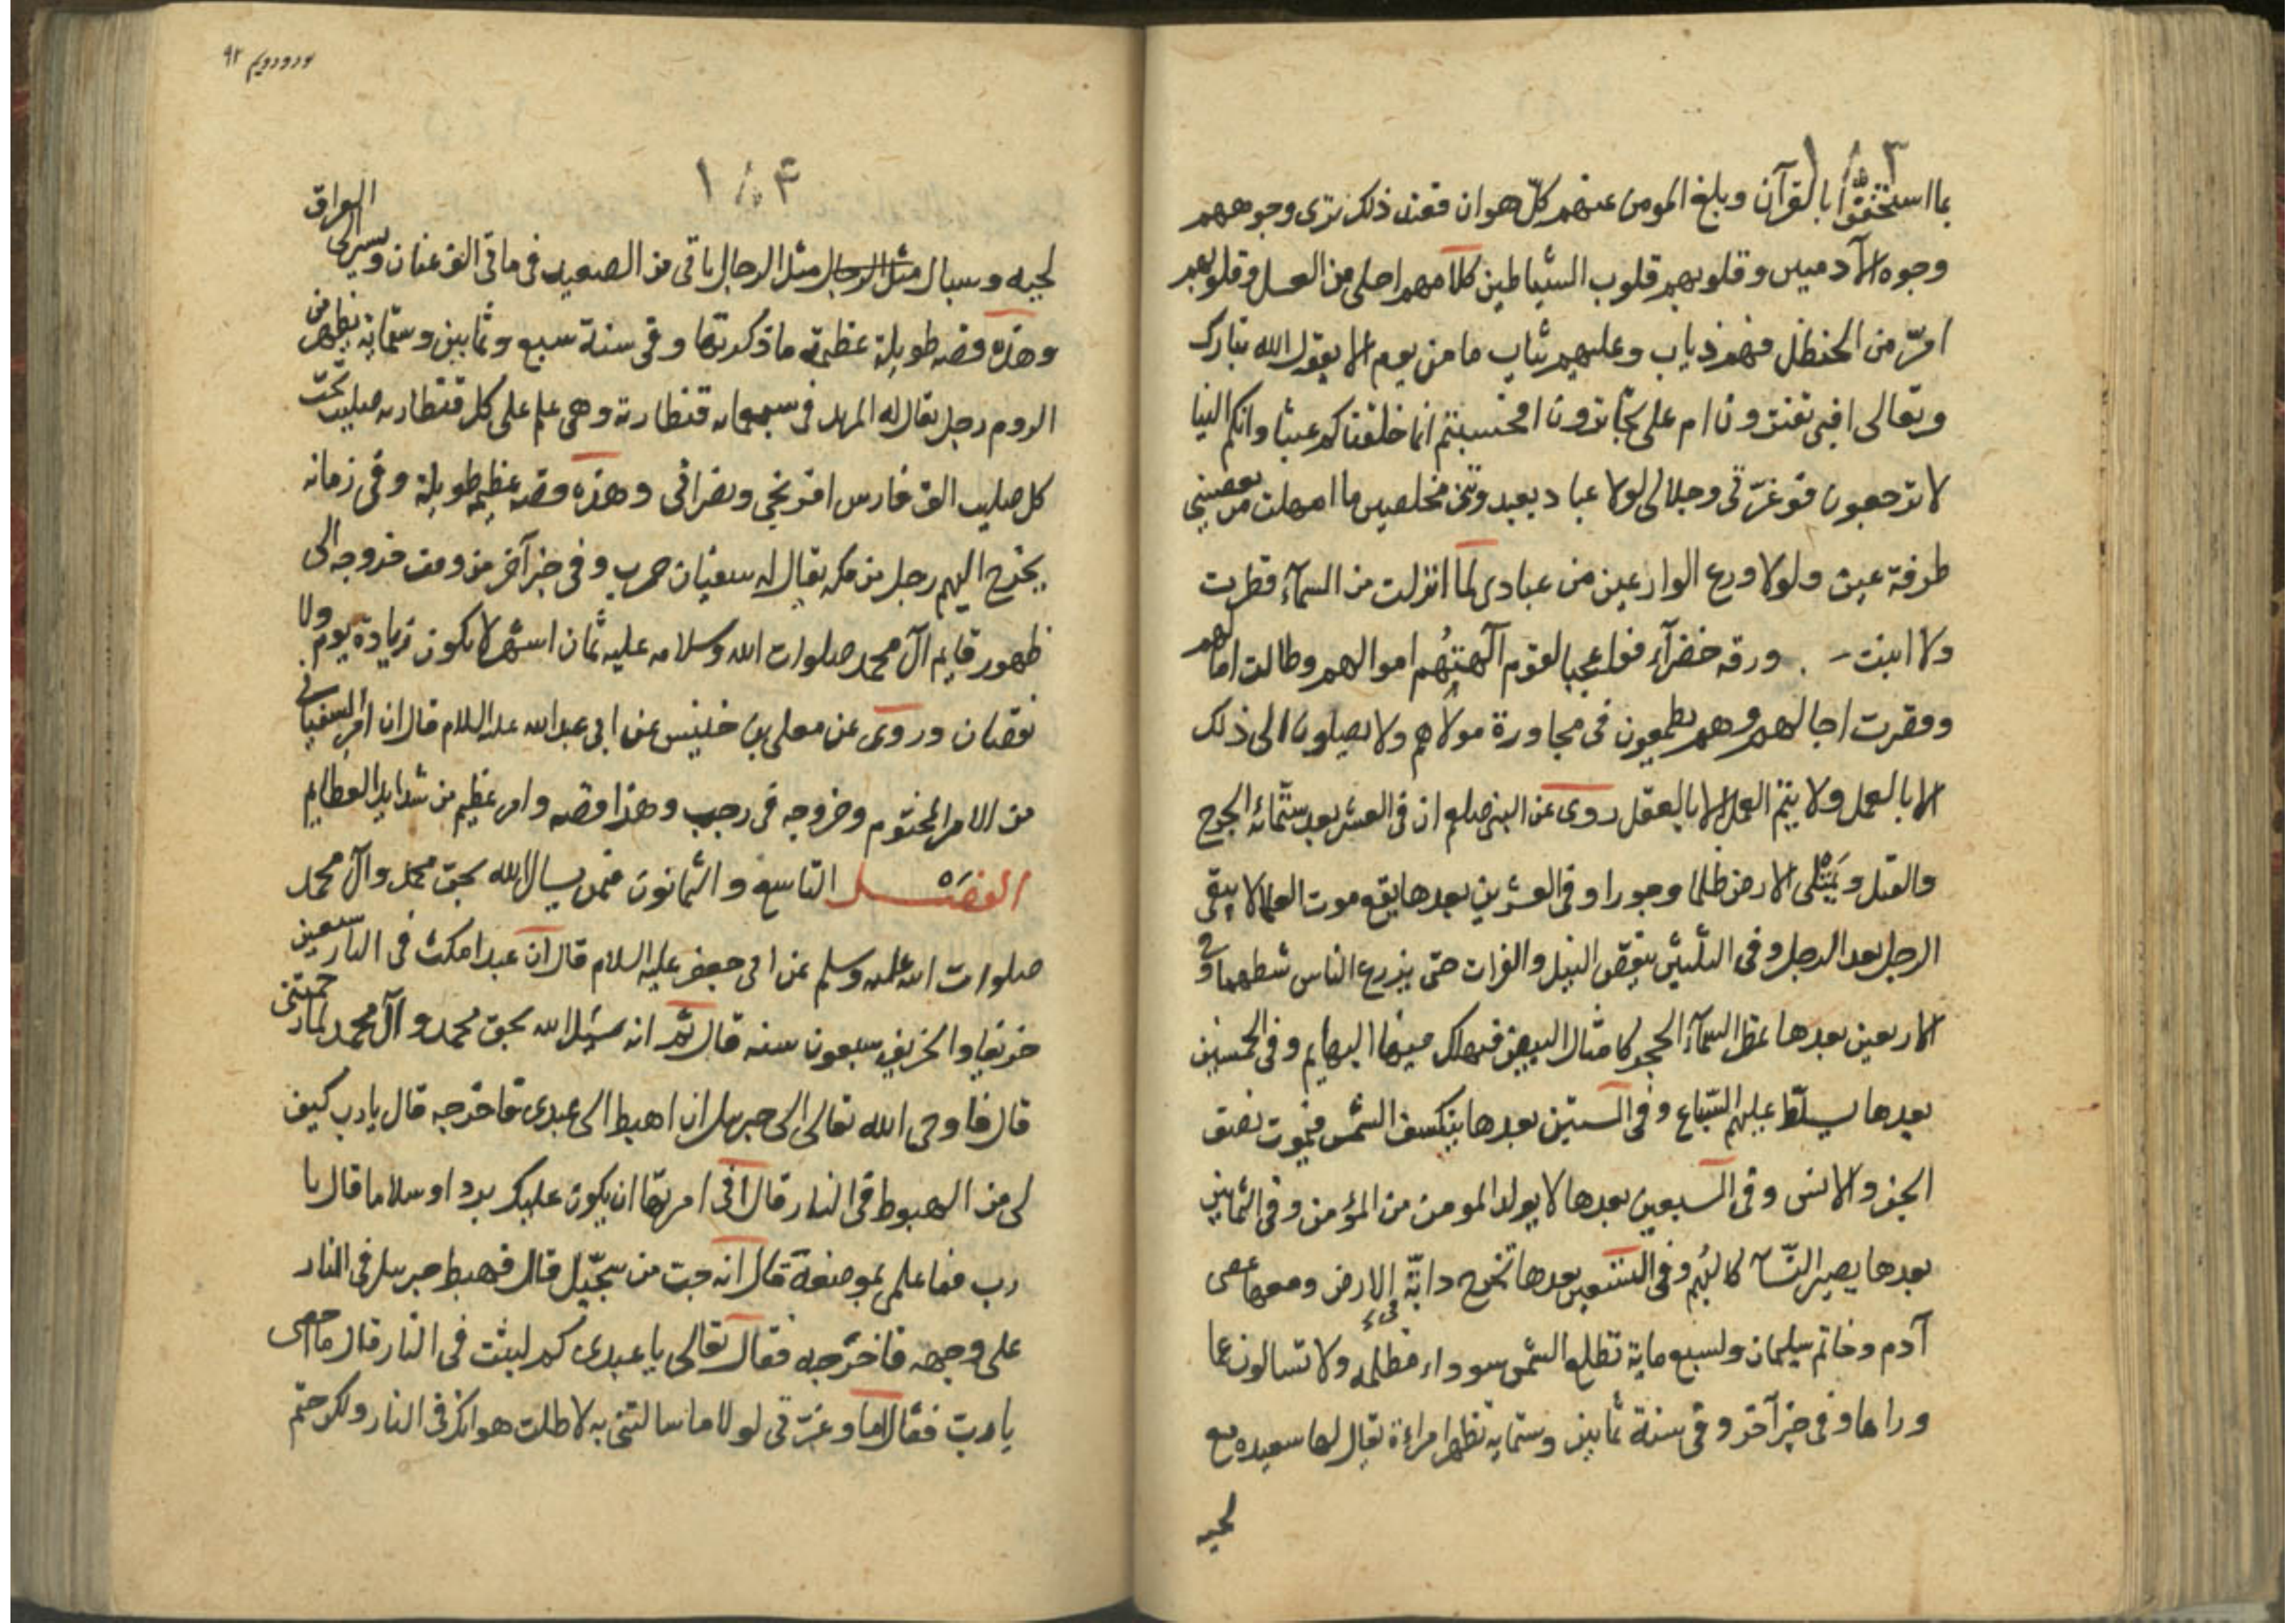 ١٨٣
بما استخفوا بالقرآن وبلغ المومن عنهم كل هوان فعند ذلك ترى وجوههم
وجوه الآدميين وقلوبهم قلوب الشياطين كلامهم احلى من العسل وقلوبهم
امرّ من الحنظل فهم ذياب وعليهم ثياب ما من يوم الا يقول الله تبارك
وتعالى افبى تغترون ام على تجترون افحسبتم انما خلقناكم عبثا وانكم الينا
لا ترجعون فوعزتى وجلالى لولا عباد يعبدوننى مخلصين ما امهلت من يعصينى
طرفة عين ولولا ورع الوارعين من عبادى لما انزلت من السمآء قطرت
ولا انبتت ورقه خضرآء فواعجبا لقوم آلهتهم اموالهم وطالت امالهم
وقصرت اجالهم وهم يطمعون فى مجاورة مولاهم ولا يصلون الى ذلك
الا بالعمل ولا يتم العمل الا بالعقل روى عن النبى صلعم ان فى العشر بعد ستمائه الجرح
والقتل ويمتلى الارض ظلما وجورا وفى العشرين بعدها يقع موت العلما لا يبقى
الرجل بعد الرجل وفى الثلثين ينقص النيل والفرات حتى يزرع الناس شطهما وفى
الاربعين بعدها تمطر السمآء الحجر كامثال البيض فيهلك فيها البهايم وفى الخمسين
بعدها يسلط عليهم السباع وفى الستين بعدها ينكسف الشمس فيموت نصف
الجن والانس وفى السبعين بعدها لا يولد المومن من المؤمن وفى الثمانين
بعدها يصير النسآ كالبهم وفى التسعين بعدها تخرج دابة الارض ومعها عصى
آدم وخاتم سليمان ولسبع ماية تطلع الشمس سوداء مظلمه ولا تسالون عما
وراها وفى خبر آخر وفى سنة ثمانين وستمايه تظهر امراءة يقال لها سعيده مع
لحيه
ورودويم ٩٢
١٨٤
لحيه وسبال مثل الرجال مثل الرجال ياتى من الصعيد فى ماتى الف عنان ويسير الى العراق
وهذه قصه طويلة عظيمة ما ذكرتها وفى سنة سبع وثمانين وستمايه يظهر من
الروم رجل يقال له المزيد فى سبعمايه قنطارية وهى علم على كل قنطاريه صليب تحت
كل صليب الف فارس افرنجى ونصرانى وهذه قصه عظيمه طويلة وفى زمانه
يخرج اليهم رجل من مكه يقال له سفيان حرب وفى خبر آخر من وقت خروجه الى
ظهور قايم آل محمد صلوات الله وسلامه عليه ثمان اشهر لا يكون زيادة يوم ولا
نقصان وروى عن معلى بن خنيس عن ابى عبد الله عليه السلام قال ان امر السفيانى
من الامر المختوم وخروجه فى رجب وهذا قصه وامر عظيم من شدايد العظايم
الفصل التاسع والثمانون فيمن يسال الله بحق محمد وآل محمد
صلوات الله عليه وسلم عن ابى جعفر عليه السلام قال ان عبدا مكث فى النار سبعين
خريفا والخريف سبعون سنه قال ثم انه سئل الله بحق محمد وآل محمد لما رحمتنى
قال فاوحى الله تعالى الى جبريل ان اهبط الى عبدى فاخرجه قال يا رب كيف
لى من الهبوط فى النار قال انى امرتها ان يكون عليك بردا وسلاما قال يا
رب فما علمى بموضعه قال انه جب من سجيل قال فهبط جبريل فى النار
على وجهه فاخرجه فقال تعالى يا عبدى كم لبثت فى النار قال ما احصى
يا رب فقال اما وعزتى لولا ما سالتنى به لاطلت هوانك فى النار ولكن حتم